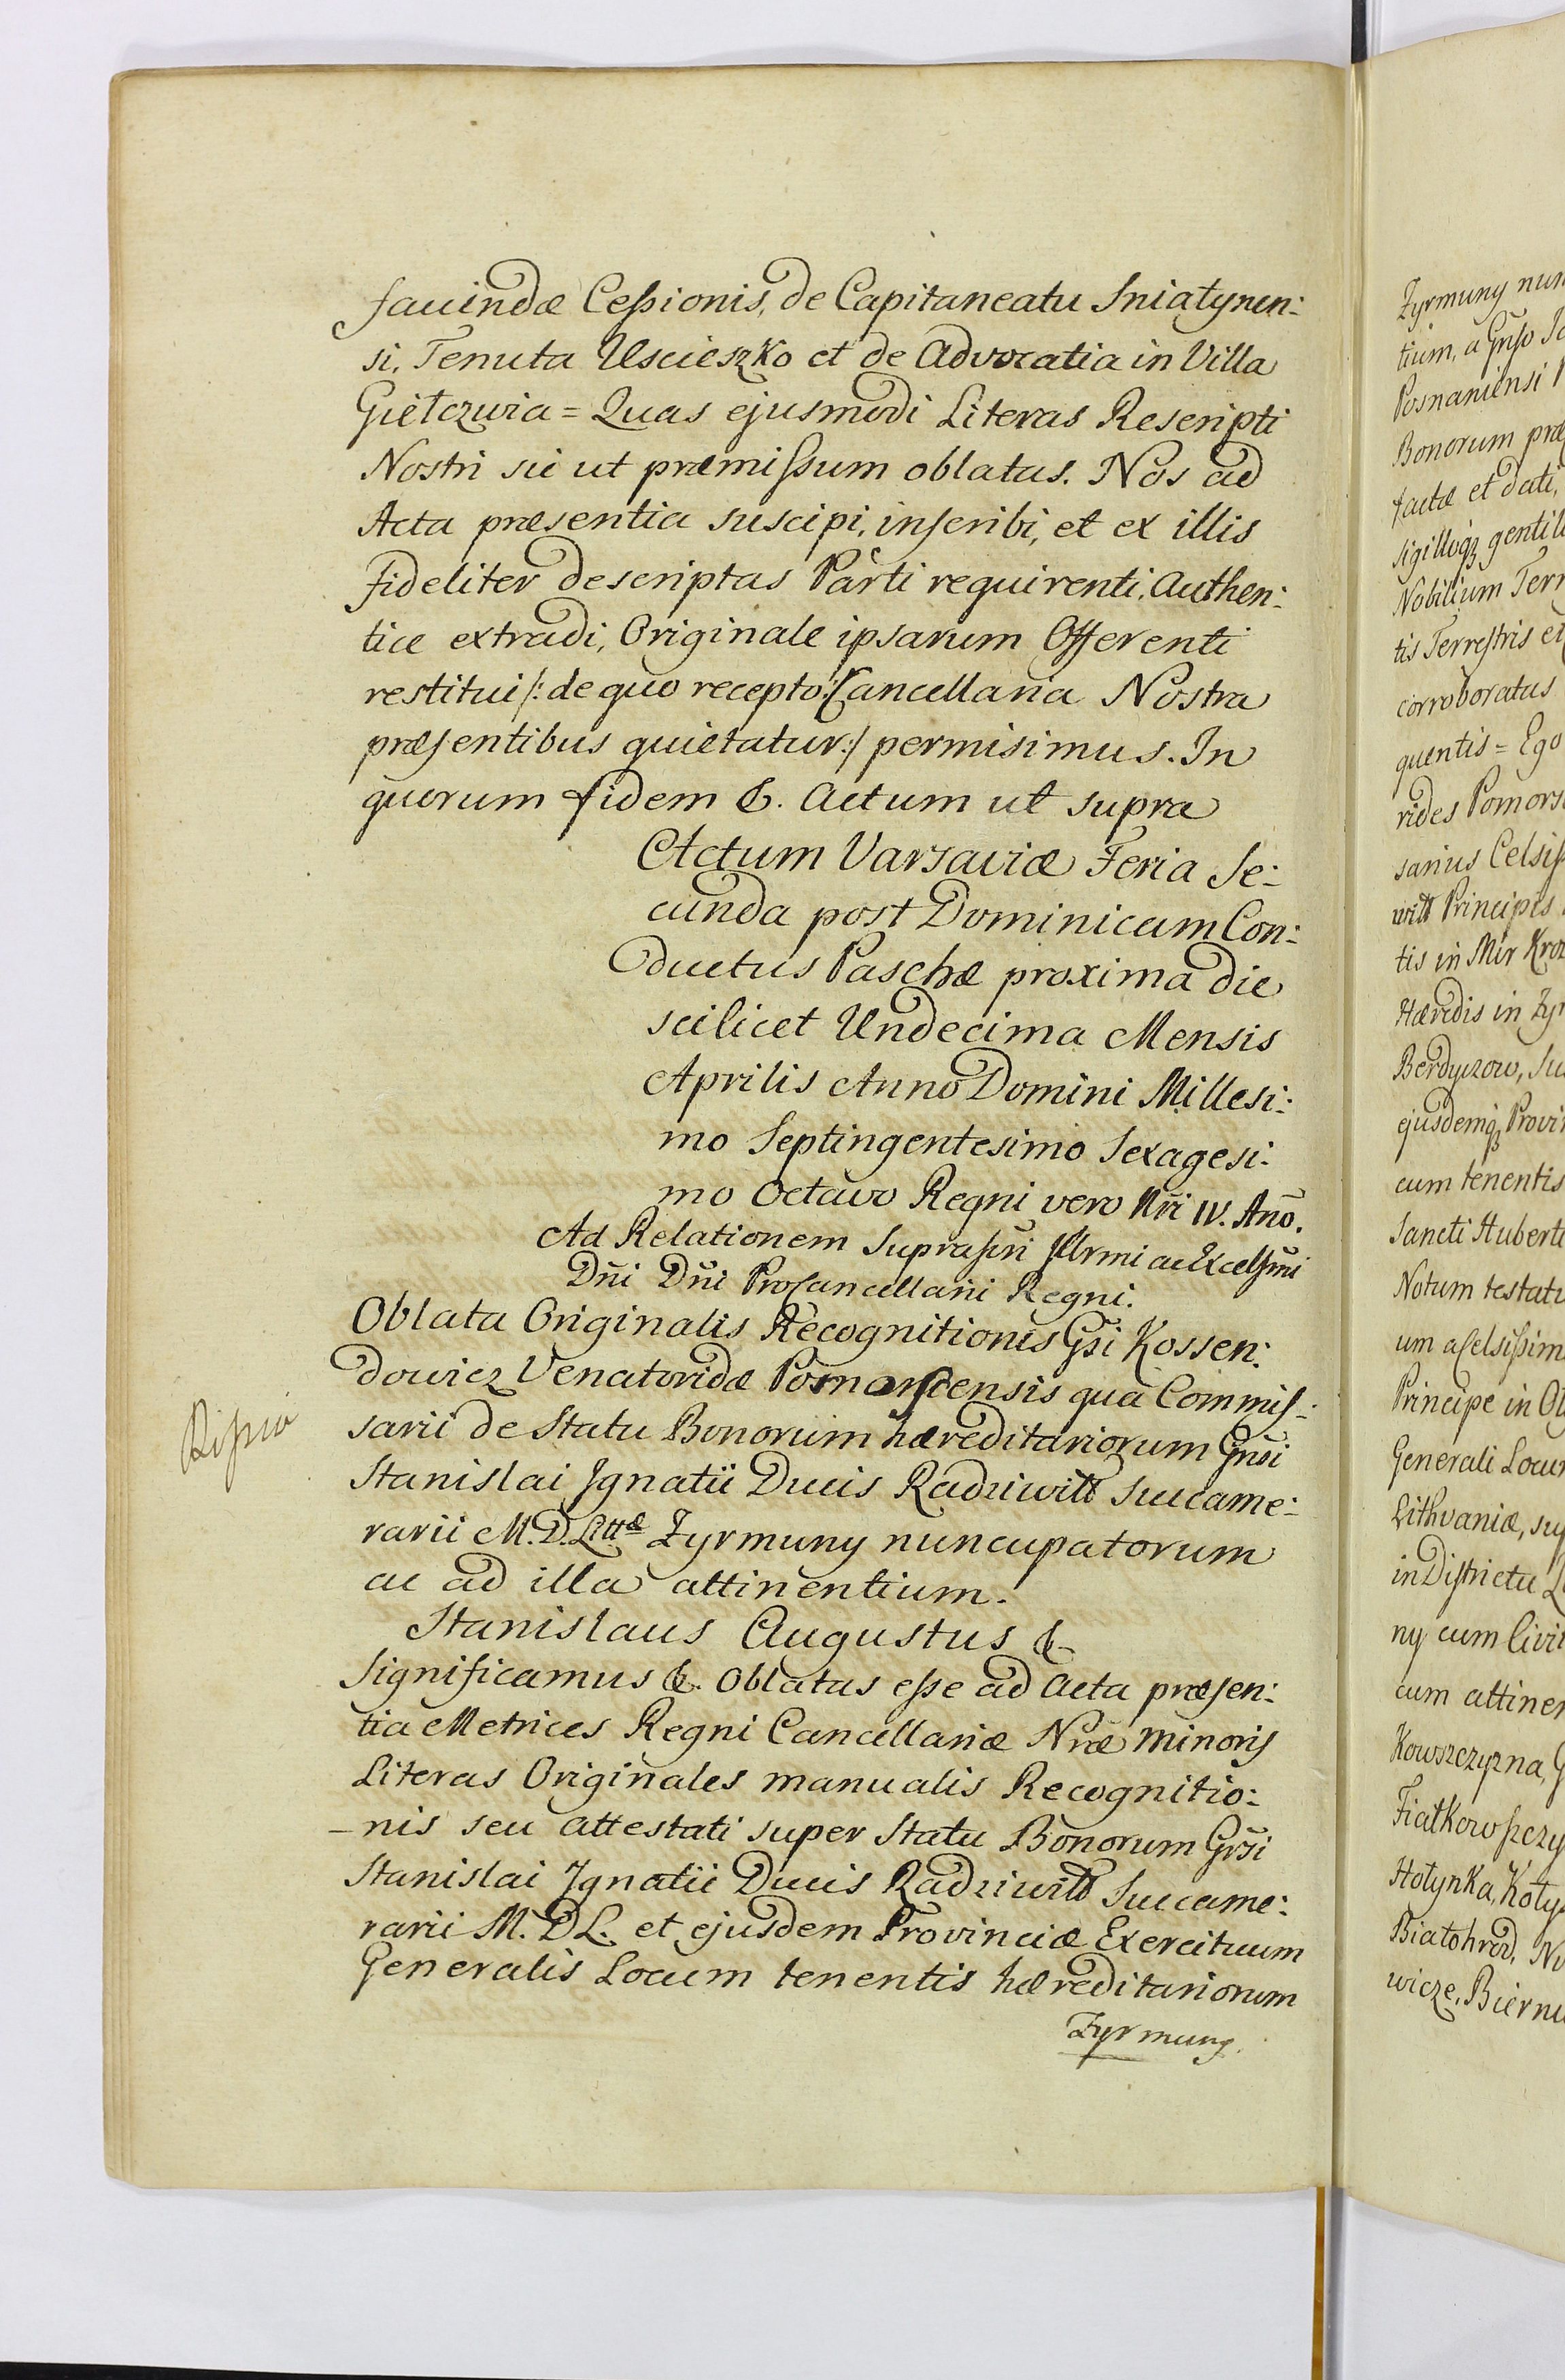 faciendæ Cessionis, de Capitaneatu Sniatynen:
si, Tenuta Uscieszko et de Advocatia in Villa
Giełczwia = Quas ejusmodi Literas Rescripti
Nostri sic ut præmissum oblatas. Nos ad
Acta præsentia suscipi, inscribi, et ex illis
fideliter descriptas Parti requirenti, Authen:
tice extradi, Originale ipsarum Offerenti
restitui /: de quo recepto Cancellaria Nostra
præsentibus quietatur :/ permisimus. In
quorum fidem &. Actum ut supra
Actum Varsaviæ Feria Se:
cunda post Dominicam Con:
ductus Paschæ proxima die
scilicet Undecima Mensis
Aprilis Anno Domini Millesi:
mo Septingentesimo Sexagesi:
mo Octavo Regni vero Nri IV. Ano.
Ad Relationem Suprascri Illrmi ac Excelsmi
Dni Dni ProCancellarii Regni.
Oblata Originalis Recognitionis Gsi Kossen:
dowicz Venatoridæ qua Commis:
sarii de Statu Bonorum hæreditariorum Gnsi
Stanislai Ignatii Ducis Radziwiłł Succame:
rarii M. D. Littæ Zyrmuny nuncupatorum
ac ad illa attinentium.
Stanislaus Augustus &
Significamus &. Oblatas esse ad Acta præsen:
tia Metrices Regni Cancellariæ Nræ minoris
Literas Originales manualis Recognitio:
-nis seu attestati super Statu Bonorum Grsi
Stanislai Ignatii Ducis Radziwiłł Succame:
rarii M. D L. et ejusdem Provinciæ Exercituum
Generalis Locum tenentis hæreditariorum
Zyrmuny.
Zyrmuny nun
tium, a
Posnaniensi
Bonorum præ
factæ et dati,
sigilloq gentili
Nobilium Terr
tis Terrestris et
corroboratus
quentis = Ego
rides Pomors
sarius Celsiss
wiłł Principis
tis in Mir Kroz
Hæredis in Zyr
Berdyczow, Su
ejusdemq Provin
cum tenentis
Sancti Huberti
Notum testatu
um a Celsissim
Principe in Ol
Generali Locum
Lithvaniæ, sup
in Districtu L
ny cum Civit
cum attinen
Kowszczyzna, G
Fiałkowszczy
Hołynka, Koty
Białohrod, No
wicze, Biernu